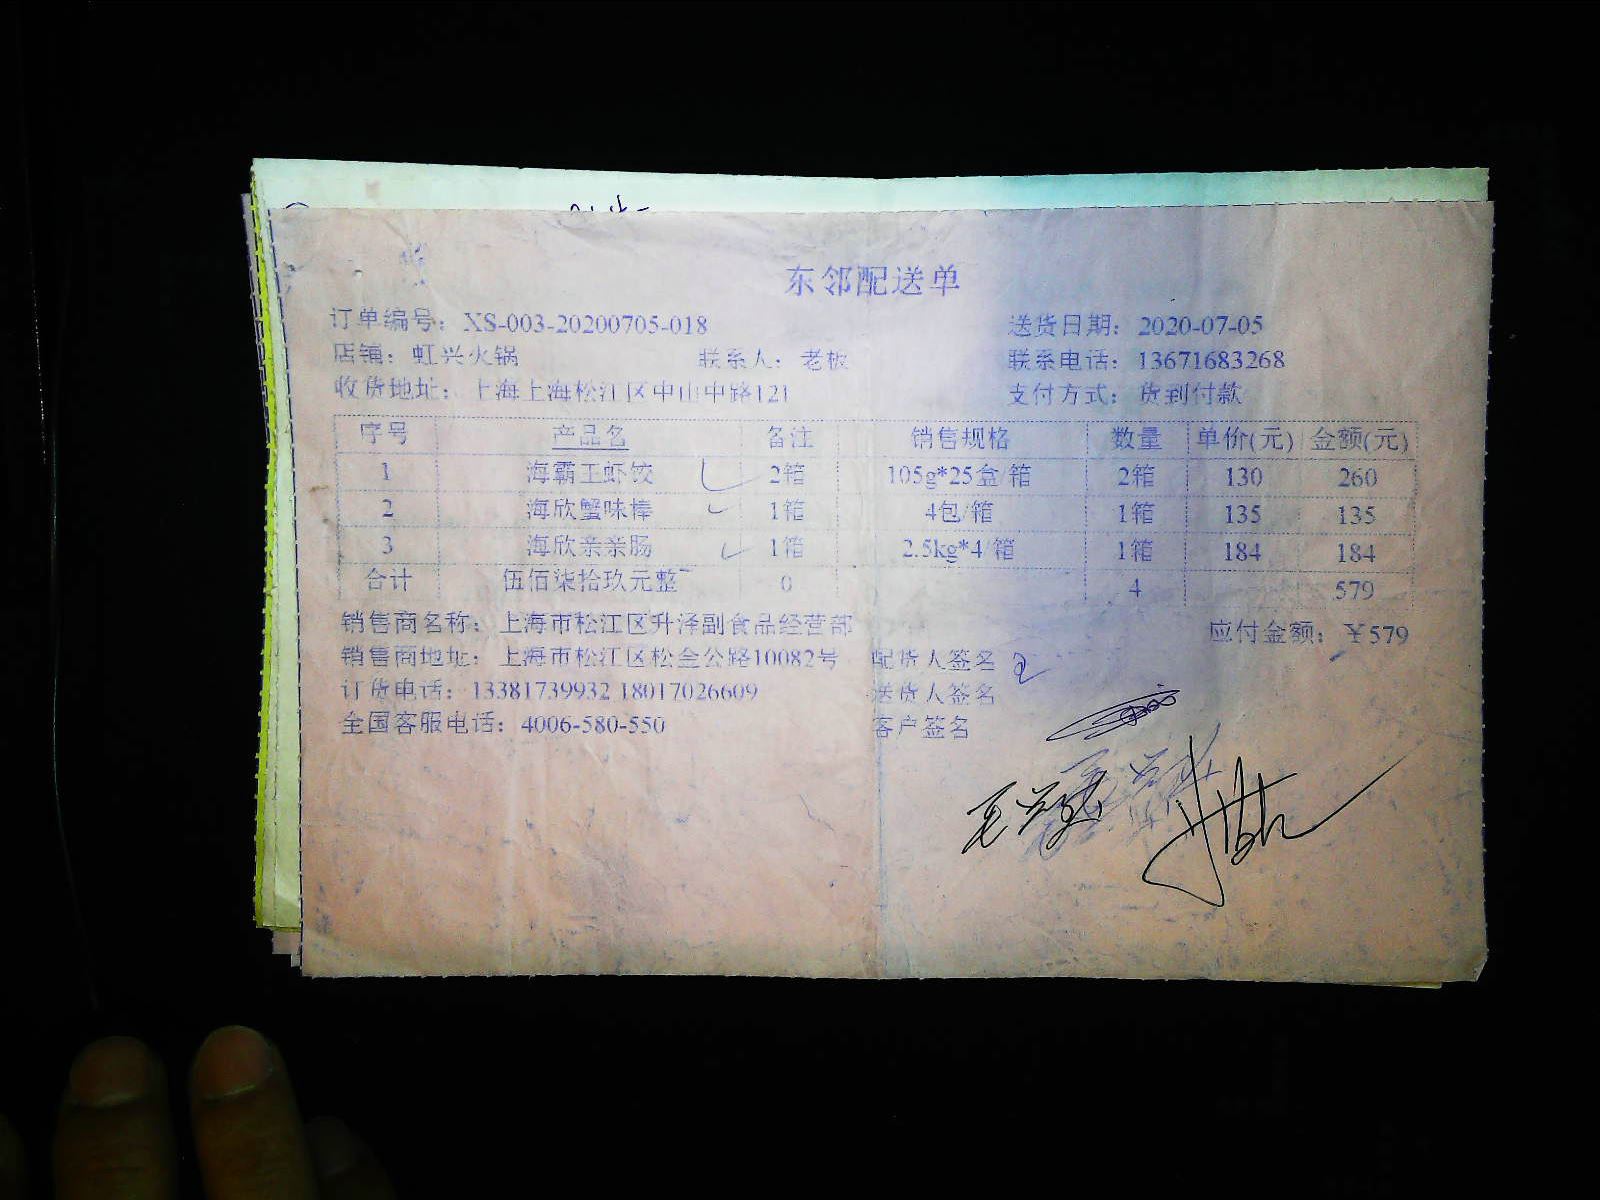 东邻配送单
订单编号：XS-003-20200705-018 送货日期：2020-07-05
店铺：虹兴火锅 联系人：老板 联系电话：13671683268
收货地址：上海上海松江区中山中路121 支付方式：货到付款
序号 产品名 备注 销售规格 数量 单价(元) 金额(元)
1 海霸王虾饺 2箱 105g*25盒/箱 2箱 130 260
2 海欣蟹味棒 1箱 4包/箱 1箱 135 135
3 海欣亲亲肠 1箱 2.5kg*4/箱 1箱 184 184
合计 伍佰柒拾玖元整 0 4 579
销售商名称：上海市松江区升泽副食品经营部 应付金额：￥579
销售商地址：上海市松江区松金公路10082号 配货人签名
订货电话：13381739932 18017026609 送货人签名
全国客服电话：4006-580-550 客户签名